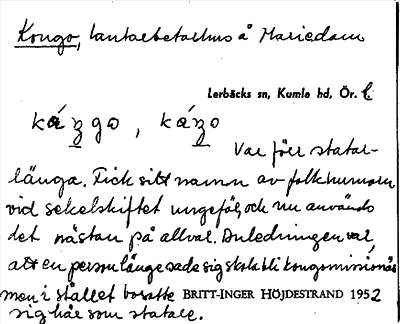 Kongo, lantarbetarhus å Mariedam
Lerbäcks sn, Kumle hd, Ör. l.
kázgo, kázo
Var förr statar-
länga. Fick sitt namn av folkhumorn
vid sekelskiftet ungefär, och nu används
det nästan på allvar. Anledningen var,
att en person länge sade sig skola bli kongomissionär
men i stället bosatte BRITT-INGER HÖJDESTRAND 1952
sig här som statare.